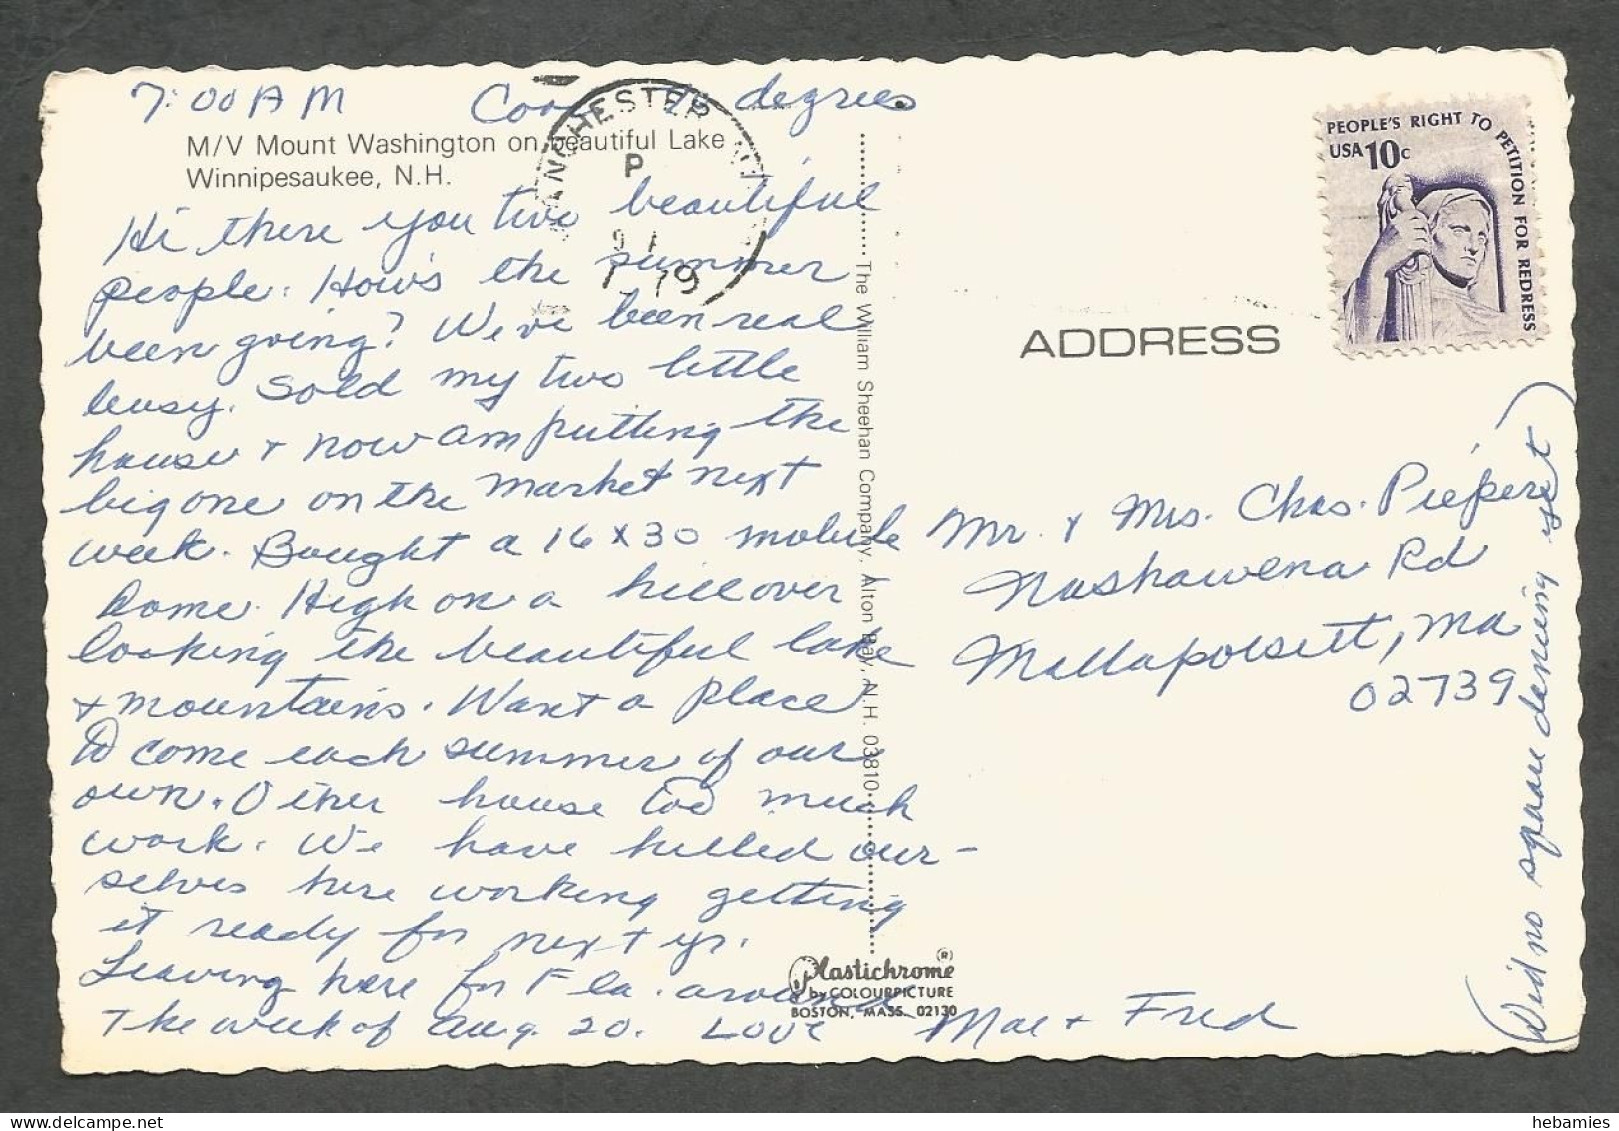 7:00 AM Cool degrees
M/V Mount Washington on beautiful Lake
Winnipesaukee, N.H.
Hi there you two beautiful
people. How's the summer
been going? We've been real
busy. Sold my two little
house & now am putting the
big one on the market next
week. Bought a 16 x 30 mobile
home. High on a hill over
looking the beautiful lake
& mountains. Want a place
to come each summer of our
own. Other house too much
work. We have killed our-
selves here working getting
it ready for next yr.
Leaving here for Fla. around
the week of Aug. 20. Love Mae & Fred
MANCHESTER
P
79
The William Sheehan Company, Alton Bay, N.H. 03810
Plastichrome ®
by COLOURPICTURE
BOSTON, MASS. 02130
PEOPLE'S RIGHT TO PETITION FOR REDRESS
USA 10c
ADDRESS
Mr. & Mrs. Chas. Piepere
Nashawena Rd
Mattapoisett, Ma
02739
(Did no square dancing yet)
hebamies